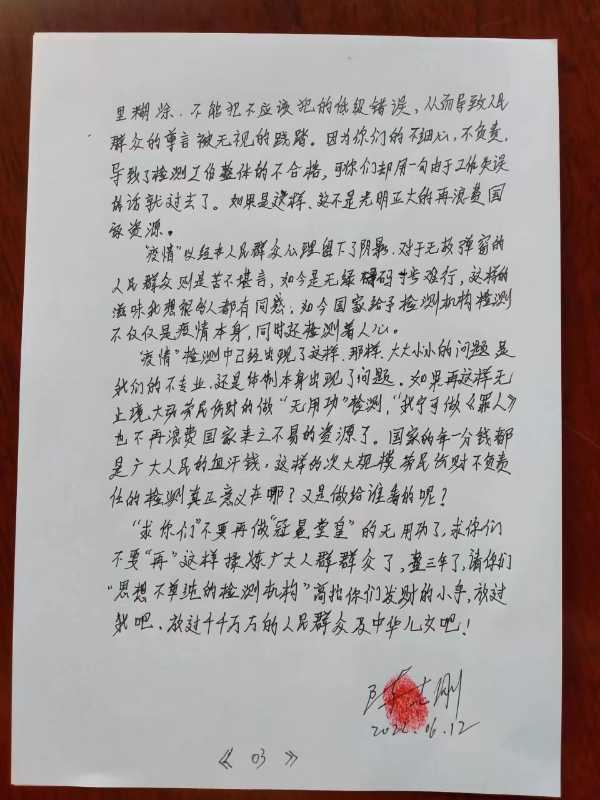 里糊涂、不能犯不应该犯的低级错误、从而导致人民
群众的尊言被无视的践踏。因为你们的不细心,不负责,
导致了检测工作整体的不合格,可你们却用一句由于工作失误
的话就过去了。如果是这样、这不是光明正大的再浪费国
家资源。
"疫情"以经书人民群众心理留下了阴影、对于无核弹窗的
人民群众则是苦不堪言,如今是无绿码寸步难行,这样的
滋味我想很多人都有同感,如今国家给予检测机构检测
不仅仅是疫情本身,同时还检测着人心。
"疫情"检测中已经出现了这样、那样、大大小小的问题是
我们的不专业、还是体制本身出现了问题。如果再这样无
止境、大张劳民伤财的做"无用功"检测,"我宁可做《罪人》
也不再浪费国家来之不易的资源了。国家的每一分钱都
是广大人民的血汗钱,这样的次大规模劳民伤财不负责
任的检测真正意义在哪?又是做给谁看的呢?
"求你们"不要再做"冠冕堂皇"的无用功了,求你们
不要"再"这样揉炼广大人群群众了,整三年了,请你们
"思想不单纯的检测机构"高抬你们发财的小手,放过
我吧、放过千千万万的人民群众及中华儿女吧!
志刚
2022.06.12
《 03 》